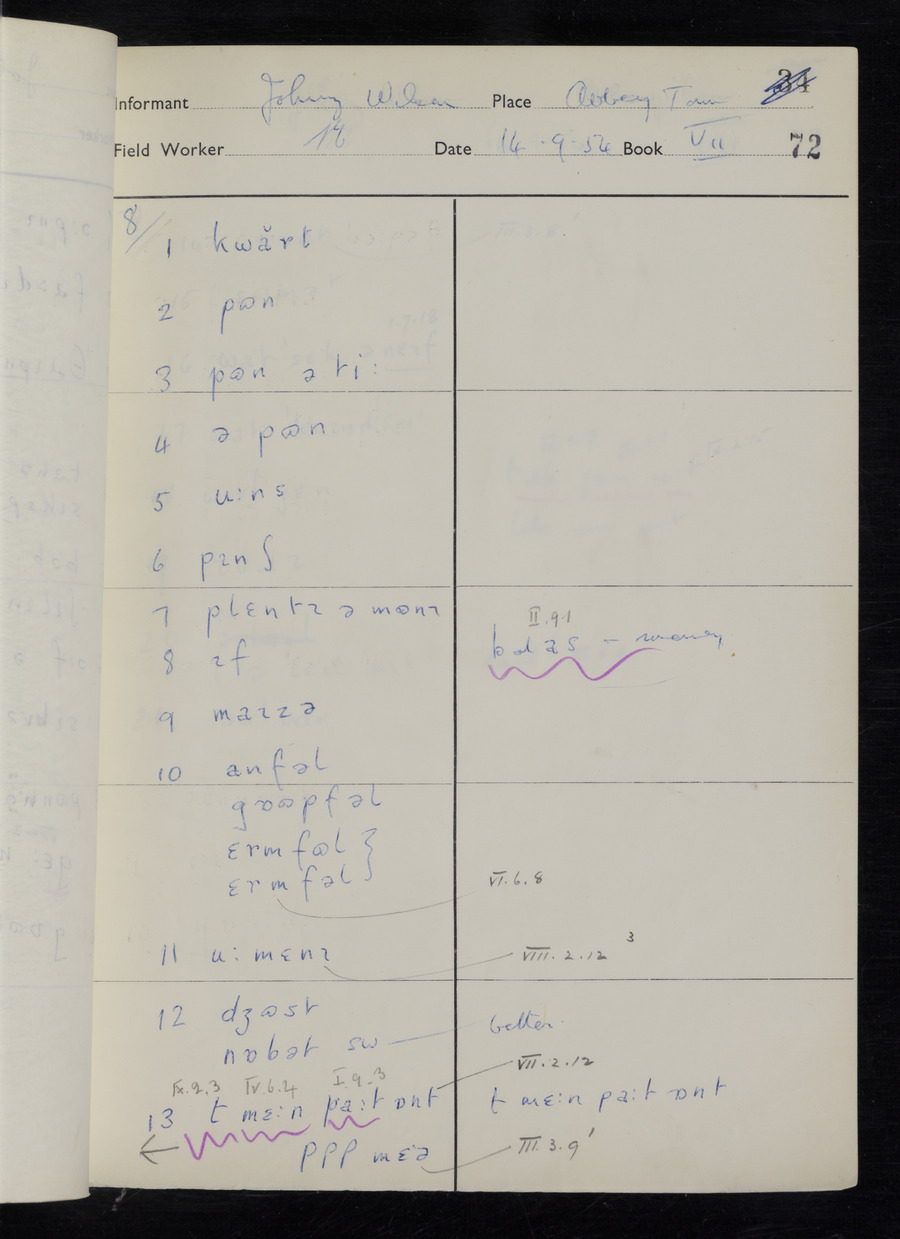 Informant Johnny Wilson Place Abbey Town
34
Field Worker Date 14.9.54 Book VII 72
8/
1 kwǎrt
2 pɷn
3 pɷn ə ti:
4 ə pɷn
5 u:ns
6 pɪnʃ
7 plɛntɪ ə mɷnɪ
II.9.1
8 ɪf
money
9
10 anfəl
fəl
ɛrmfɷl }
ɛrmfəl }
VI.6.8
11 u: mɛnɪ
VIII.2.12 3
12 dʒɷst
better
nɒbət sw
VII.2.12
IX.2.3 IV.6.2 I.9.3
13 t mɛ:n pa:t ɒnt
t mɛ:n pa:t ɒnt
ppp mɛə
III.3.9'